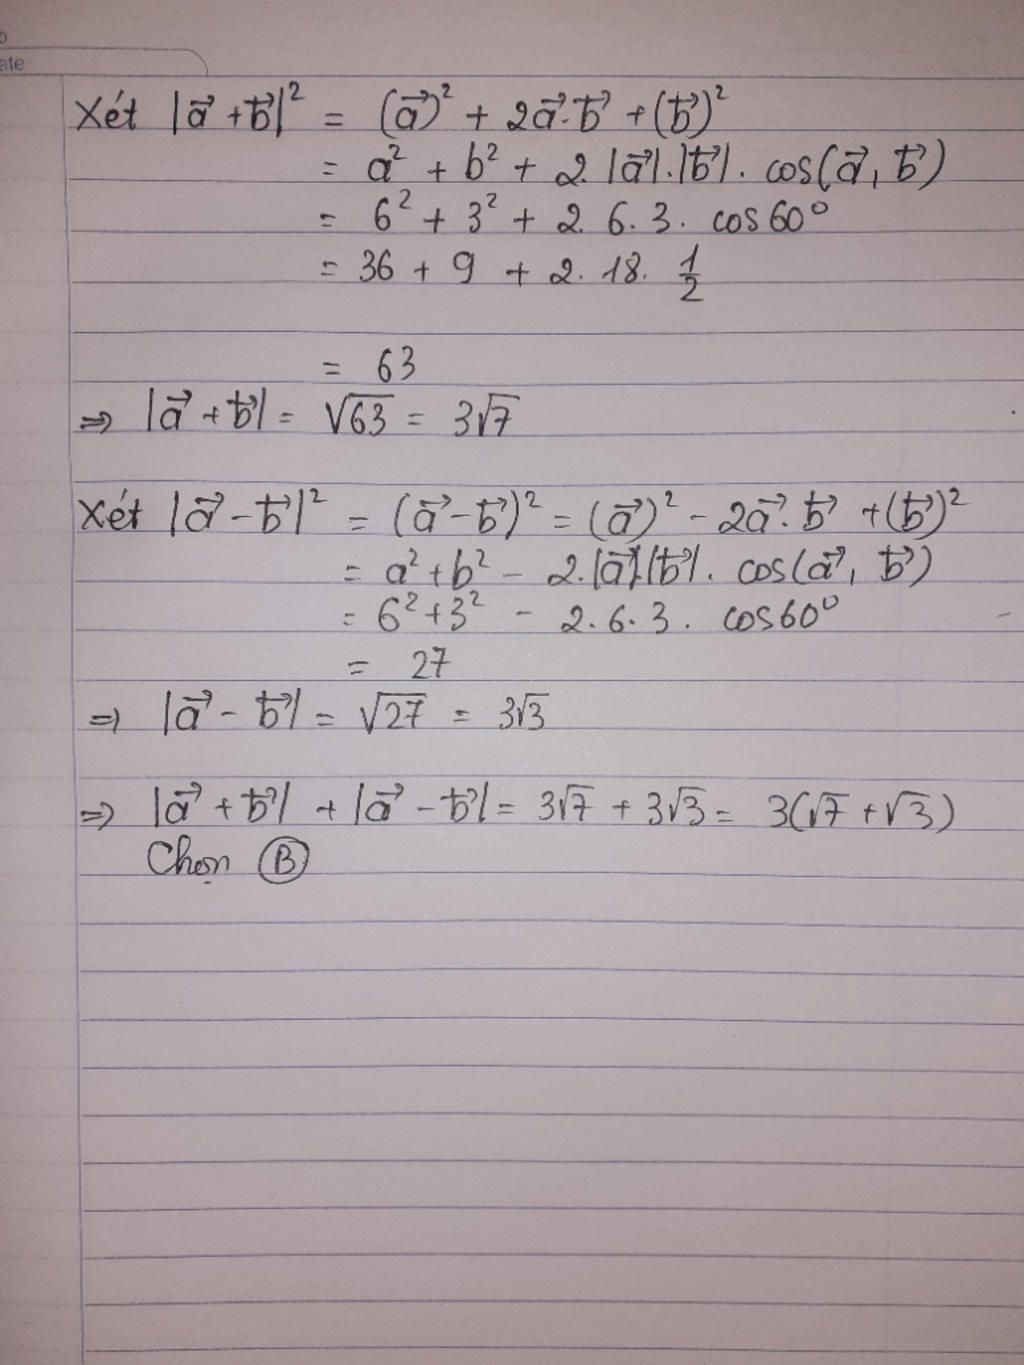 ate
Xét |a⃗ + b⃗|² = (a⃗)² + 2a⃗.b⃗ + (b⃗)²
= a² + b² + 2.|a⃗|.|b⃗|. cos(a⃗, b⃗)
= 6² + 3² + 2. 6. 3. cos60°
= 36 + 9 + 2. 18. 1/2
= 63
⇒ |a⃗ + b⃗| = √63 = 3√7
Xét |a⃗ - b⃗|² = (a⃗ - b⃗)² = (a⃗)² - 2a⃗. b⃗ + (b⃗)²
= a² + b² - 2.|a⃗|.|b⃗|. cos(a⃗, b⃗)
= 6² + 3² - 2. 6. 3. cos60°
= 27
⇒ |a⃗ - b⃗| = √27 = 3√3
⇒ |a⃗ + b⃗| + |a⃗ - b⃗| = 3√7 + 3√3 = 3(√7 + √3)
Chọn Ⓑ